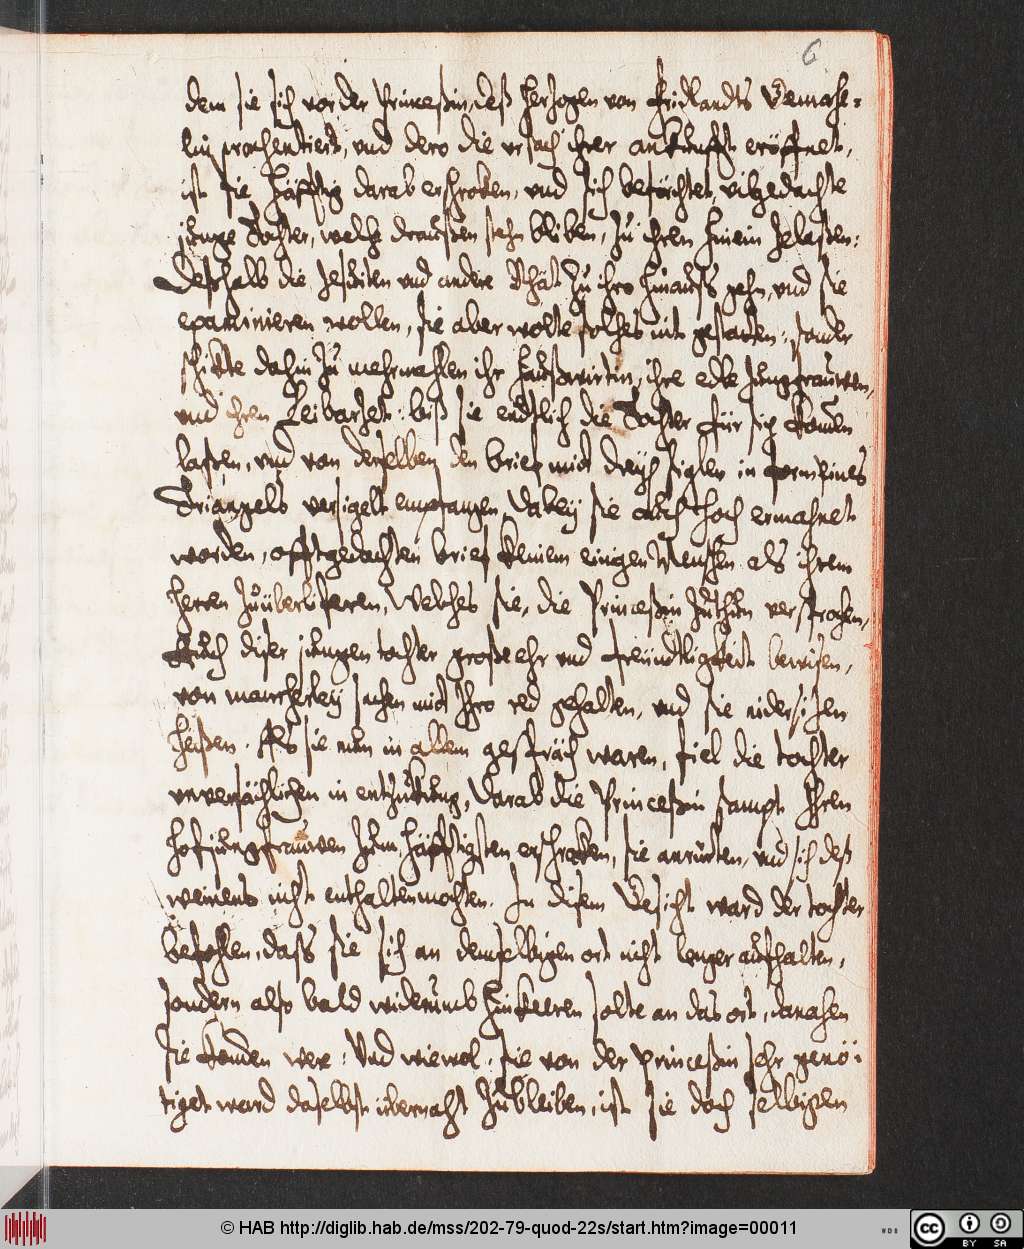 6
dem sie sich vor der Princeßin, deß Herzogen von Fridlandts Gemahe=
lin præsentiert, und dero die ursach ihrer ankunfft eröffnet,
ist sie häfftig darab erschroken, und sich beförchtet, vilgedachte
junge Tochter, welche draußen stehn bliben, zu ihren hinein zelaßen:
Deßhalb die Jesuiten und andere Rhät zu ihro hinauß gehn, und sie
examinieren wollen, sie aber wolte solches nit gestatten: sonder
schikte dahin zu mehrmahlen ihr Haußwürtin, ihre edle Jungfrauwen,
und ihren Leibarzet: biß sie endtlich die Tochter für sich kommen
laßen, und von derselben den brief mit dreyen siglen in form eines
Triangels versigelt empfangen, Dabey sie auch hoch ermahnet
worden, offtgedachten brief keinem einigen Menschen als ihrem
Herren zuüberliferen, Welches sie, die Princeßin zuthun versprochen,
Auch diser jungen tochter große ehr und freündtligkeit bewisen,
von mancherley sachen mit Ihro red gehalten, und sie nidersizen
heißen. Als sie nun in allem gespräch waren, fiel die tochter
unversächlichen in entzukung, Darab die Princeßin sampt Ihren
Hofjungfrauwen zum häfftigsten erschraken, sie anrürten, und sich deß
weinens nicht enthalten mochten. In disem Gesicht ward der tochter
befohlen, daß sie sich an demselbigen ort nicht lenger aufhalten,
sondern also bald widerumb hinkeeren solte an das ort, danahen
sie komen were: Und wiewol sie von der Princeßin sehr genö=
tiget ward daselbst übernacht zubleiben, ist sie doch selbigen
© HAB http://diglib.hab.de/mss/202-79-quod-22s/start.htm?image=00011
WDB
cc BY SA